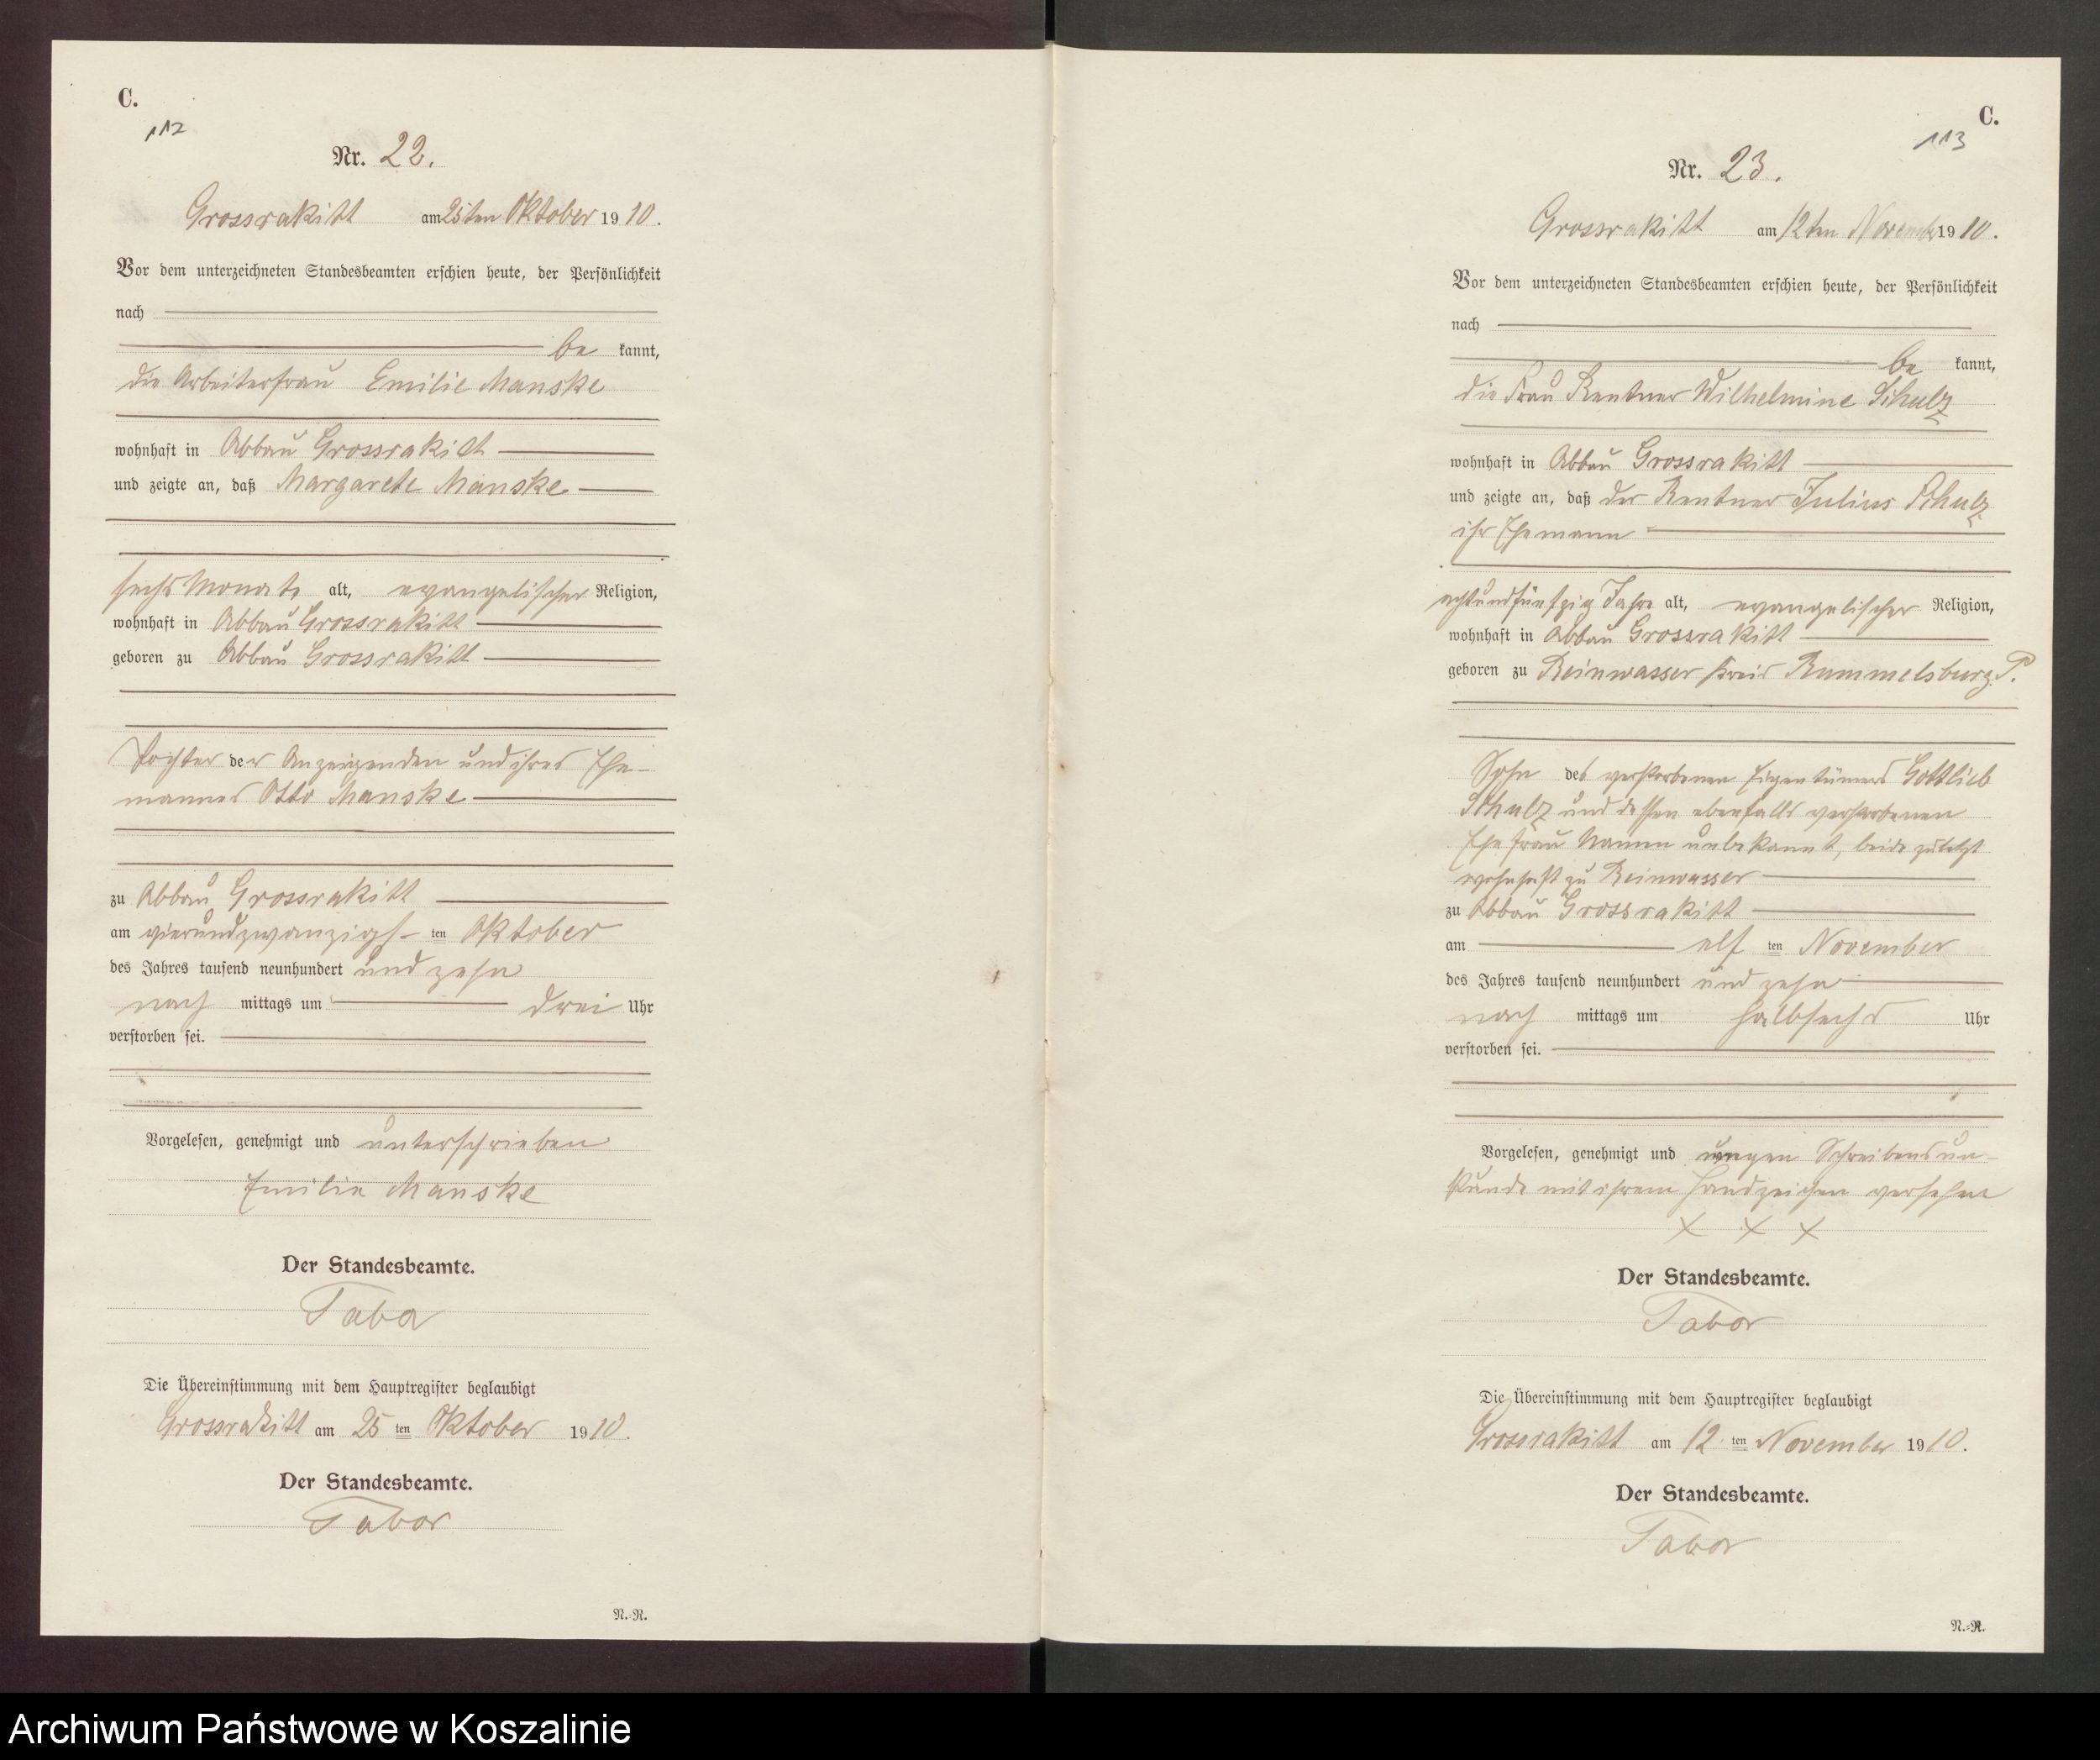 C.
112
Nr. 22.
Grossrakitt am 25ten Oktober 1910.
Vor dem unterzeichneten Standesbeamten erschien heute, der Persönlichkeit
nach
be kannt,
die Arbeiterfrau Emilie Manske
wohnhaft in Abbau Grossrakitt
und zeigte an, daß Margarete Manske
sechs Monate alt, evangelischer Religion,
wohnhaft in Abbau Grossrakitt
geboren zu Abbau Grossrakitt
Tochter der Anzeigenden und ihres Ehe-
mannes Otto Manske
zu Abbau Grossrakitt
am vierundzwanzigs- ten Oktober
des Jahres tausend neunhundert und zehn
nach mittags um drei Uhr
verstorben sei.
Vorgelesen, genehmigt und unterschrieben
Emilie Manske
Der Standesbeamte.
Tabor
Die Übereinstimmung mit dem Hauptregister beglaubigt
Grossrakitt am 25 ten Oktober 1910.
Der Standesbeamte.
Tabor
N.-R.
C.
113
Nr. 23.
Grossrakitt am 12ten November 1910.
Vor dem unterzeichneten Standesbeamten erschien heute, der Persönlichkeit
nach
be kannt,
die Frau Rentner Wilhelmine Schulz
wohnhaft in Abbau Grossrakitt
und zeigte an, daß der Rentner Julius Schulz
ihr Ehemann
achtundfünfzig Jahre alt, evangelischer Religion,
wohnhaft in Abbau Grossrakitt
geboren zu Reinwasser Kreis Rummelsburg P.
Sohn des verstorbenen Eigentümers Gottlieb
Schulz und dessen ebenfalls verstorbenen
Ehefrau Namen unbekannt, beide zuletzt
wohnhaft zu Reinwasser
zu Abbau Grossrakitt
am elf ten November
des Jahres tausend neunhundert und zehn
nach mittags um halbsechs Uhr
verstorben sei.
Vorgelesen, genehmigt und wegen Schreibensun-
kunde mit ihrem Handzeichen versehen
x x x
Der Standesbeamte.
Tabor
Die Übereinstimmung mit dem Hauptregister beglaubigt
Grossrakitt am 12 ten November 1910.
Der Standesbeamte.
Tabor
N.-R.
Archiwum Państwowe w Koszalinie